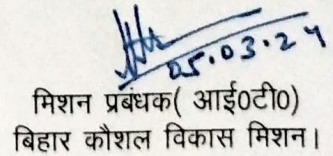 05.03.24
मिशन प्रबंधक( आई0टी0)
बिहार कौशल विकास मिशन।